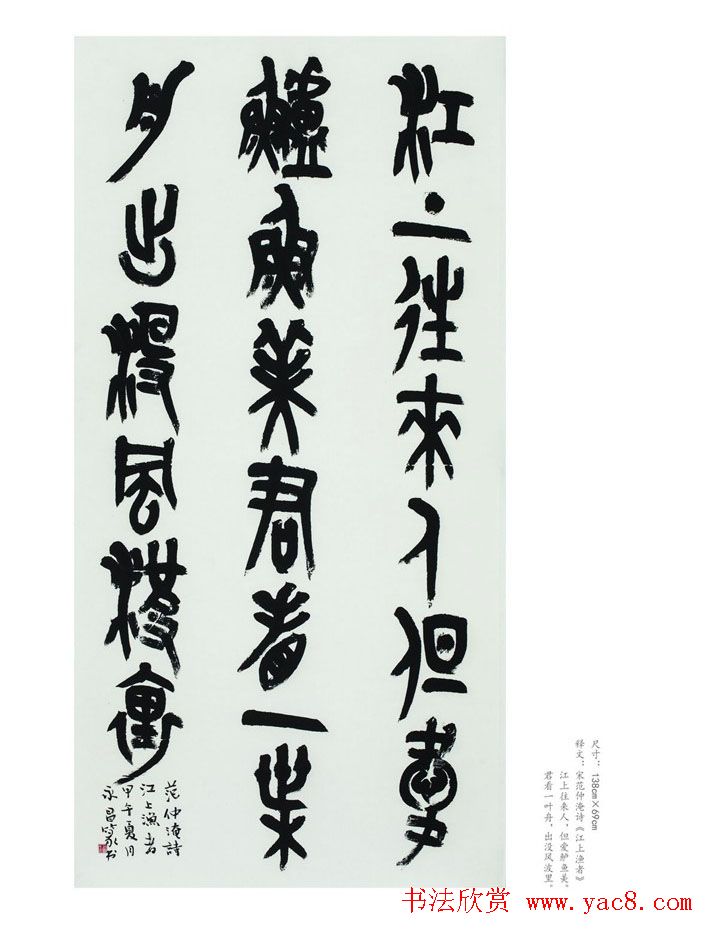 江上往来人但爱
鲈鱼美君看一叶
舟出没风波里
范仲淹詩
江上漁者
甲午夏月
永昌篆书
尺寸：138cm×69cm
释文：宋范仲淹诗《江上渔者》
江上往来人，但爱鲈鱼美。
君看一叶舟，出没风波里。
书法欣赏 www.yac8.com